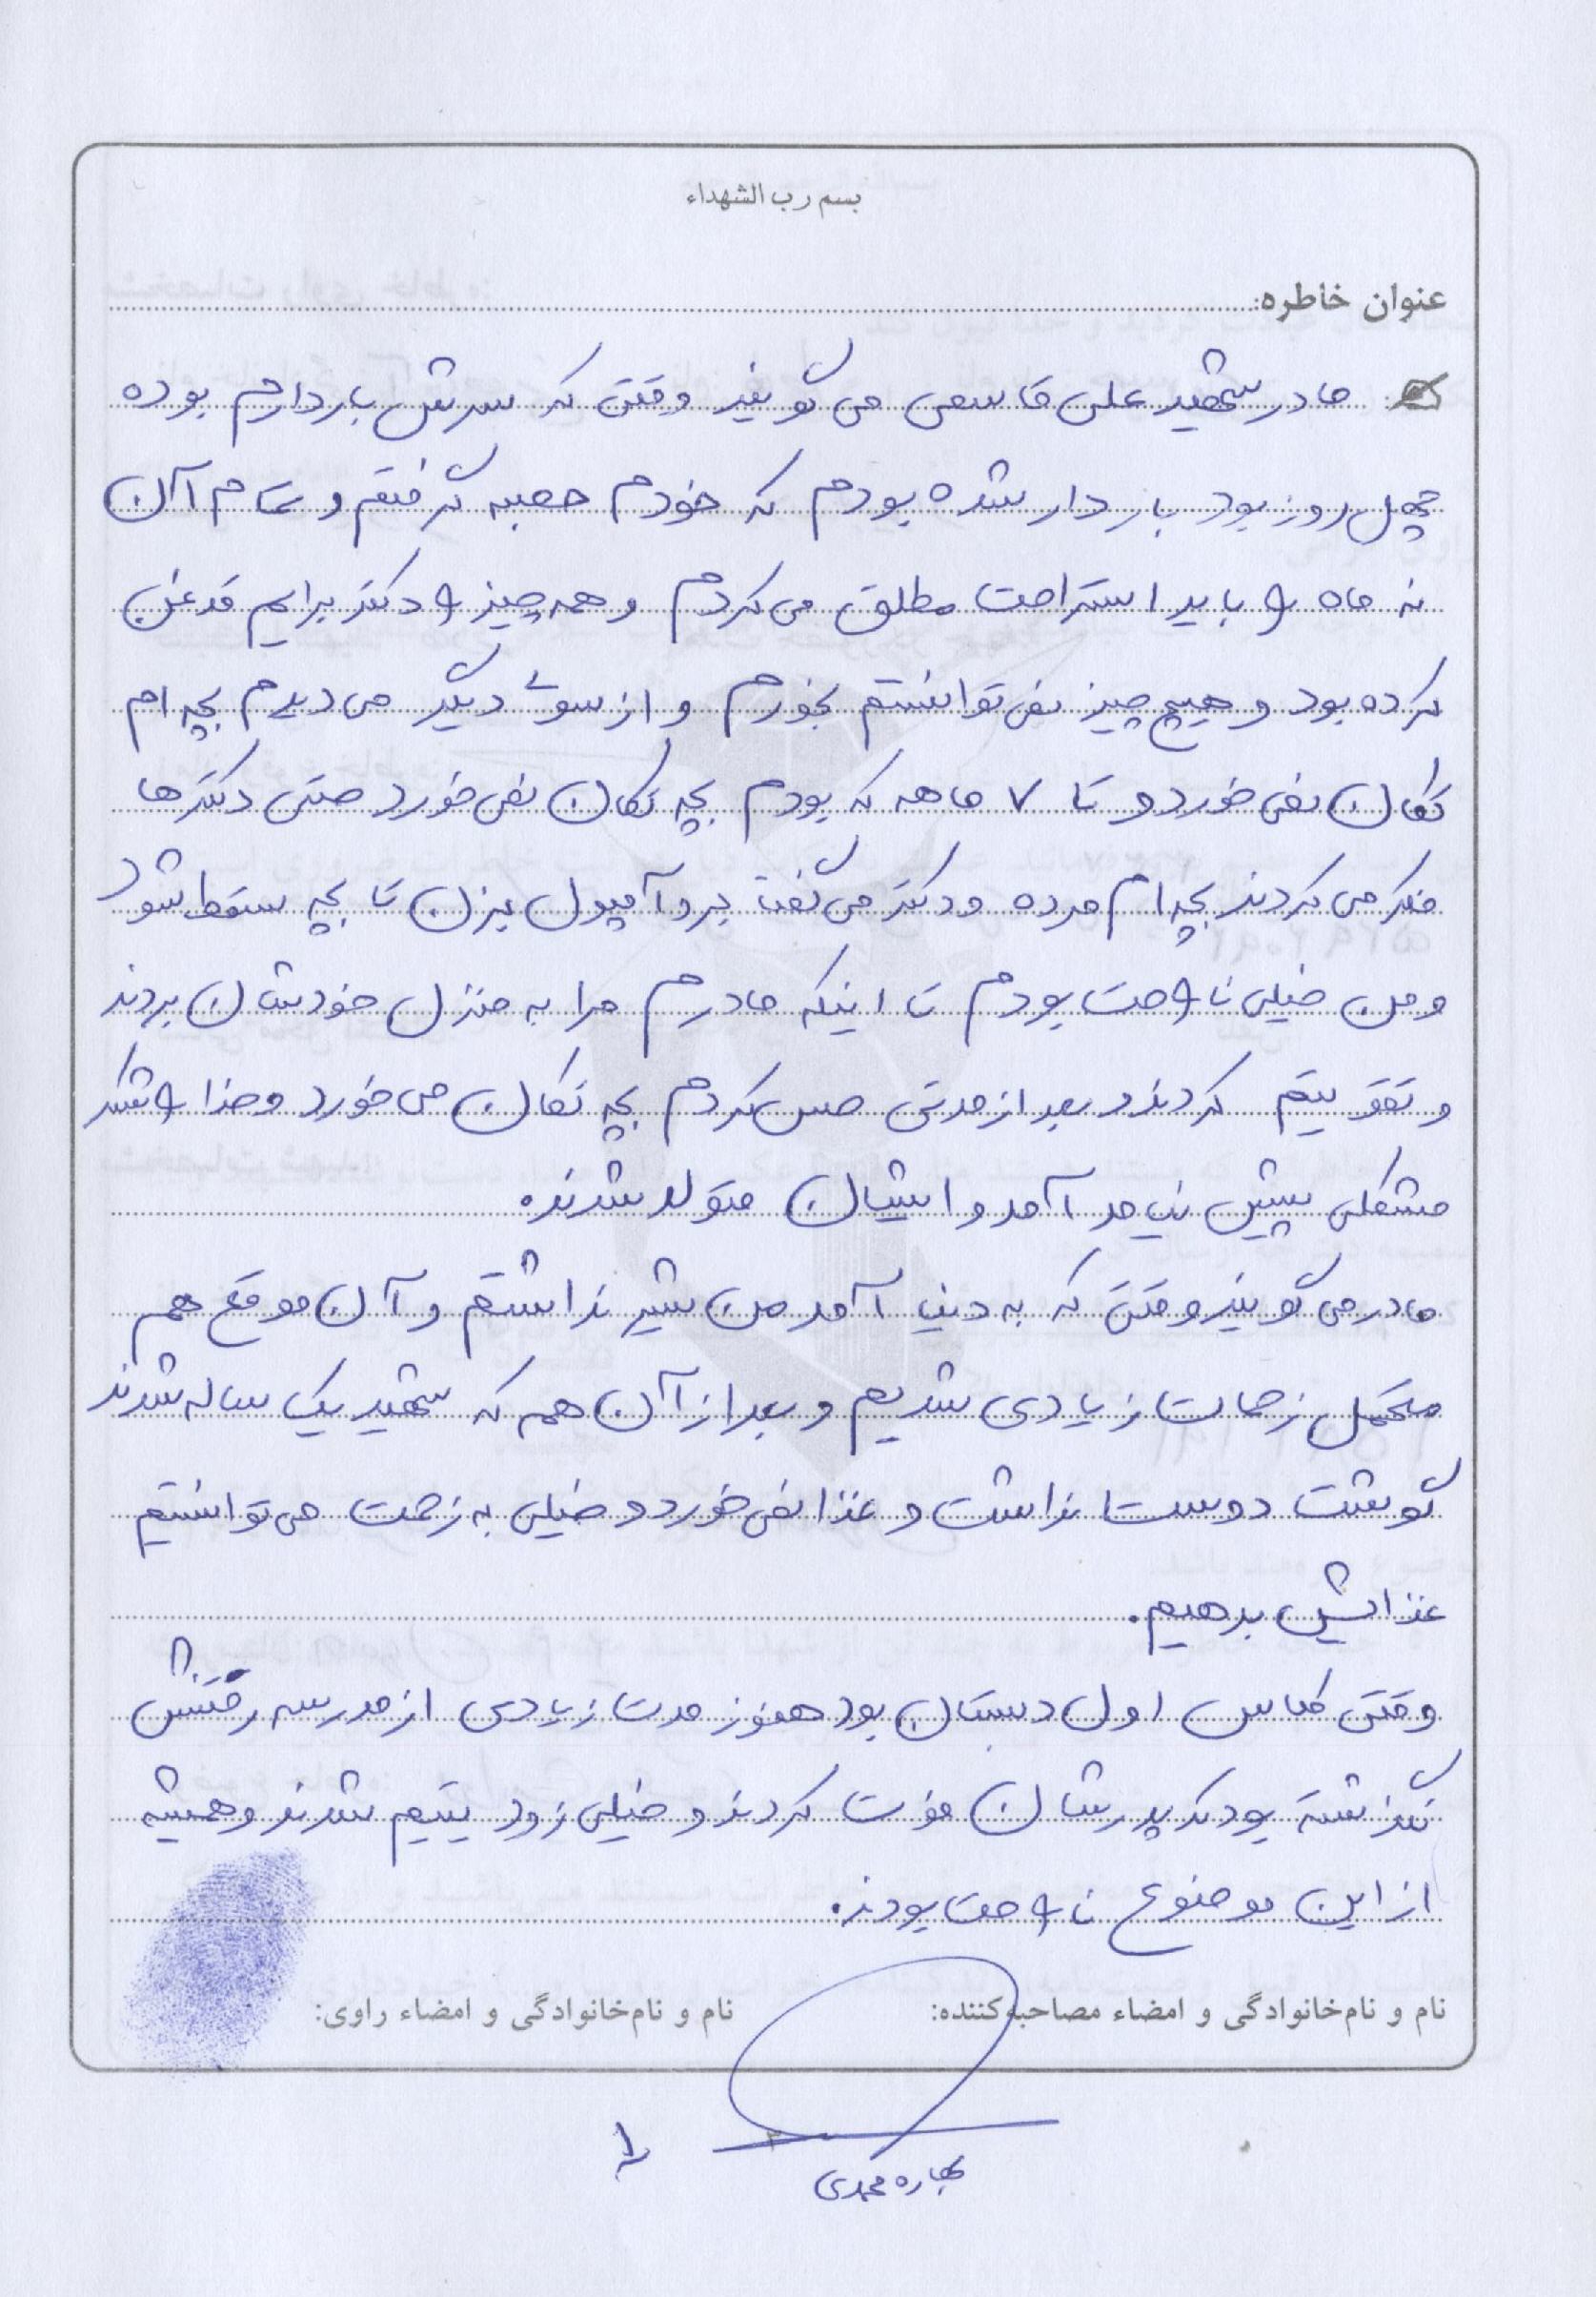 بسم رب الشهداء
عنوان خاطره:
مادر شهید علی قاسمی می گویند وقتی که سرش باردارم بوده
چهل روز بود باردار شده بودم که خودم حصبه گرفتم و تمام آن
نه ماه را باید استراحت مطلق می کردم و همه چیز را دکتر برایم قدغن
کرده بود و هیچ چیز نمی توانستم بخورم و از سوی دیگر می دیدم بچه ام
تکان نمی خورد و تا ۷ ماهه که بودم بچه تکان نمی خورد حتی دکترها
فکر می کردند بچه ام مرده و دکتر می گفت برو آمپول بزن تا بچه سقط شود
و من خیلی ناراحت بودم تا اینکه مادرم مرا به منزل خودشان بردند
و تقویتم کردند و بعد از مدتی حس کردم بچه تکان می خورد و خدا را شکر
مشکلی پیش نیامد آمد و ایشان متولد شدند.
مادر می گویند وقتی که به دنیا آمد من شیر نداشتم و آن موقع هم
متحمل زحمات زیادی شدیم و بعد از آن هم که شهید یک ساله شدند
گوشت دوست نداشت و غذا نمی خورد و خیلی به زحمت می توانستیم
غذایش بدهیم.
وقتی کلاس اول دبستان بود هنوز مدت زیادی از مدرسه رفتنش
نگذشته بود که پدرشان فوت کردند و خیلی زود یتیم شدند و همیشه
از این موضوع ناراحت بودند.
نام و نام‌خانوادگی و امضاء مصاحبه‌کننده: نام و نام‌خانوادگی و امضاء راوی:
بهاره محمدی